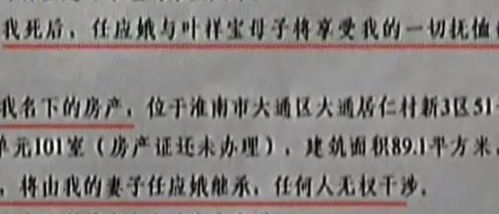 我死后，任应娥与叶样宝母子将享受我的一切抚恤
我名下的房产，位于淮南市大通区大通居仁村新3区51
单元101室（房产证还未办理），建筑面积89.1平方米
，将由我的妻子任应娥继承，任何人无权干涉.